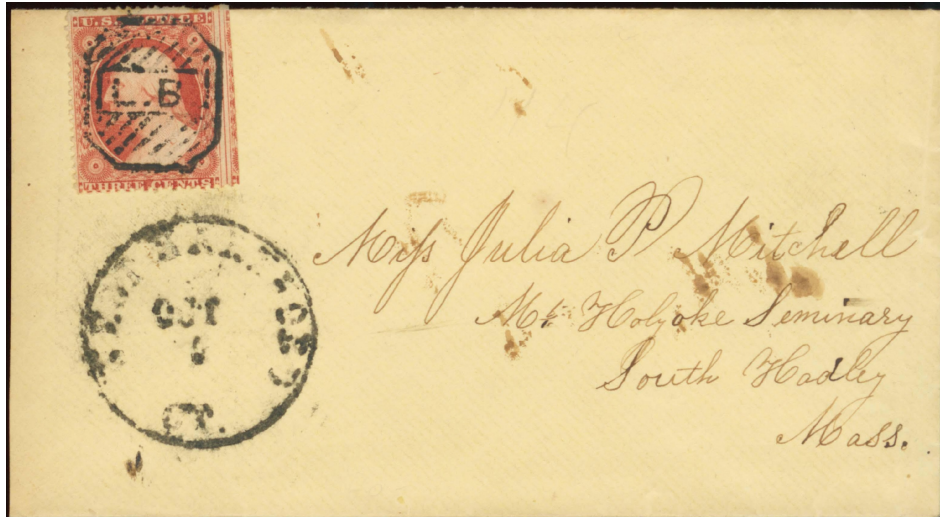 U.S. POSTAGE
L.B
THREE CENTS
OCT
CT.
Miss Julia P Mitchell
Mt Holyoke Seminary
South Hadley
Mass.